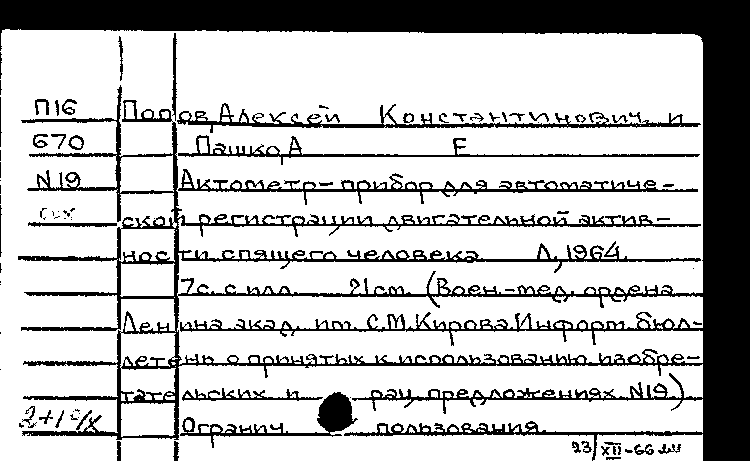 П16 Попов, Алексей Константинович и
670 Пашко, А Г
N19 Актометр – прибор для автоматиче-
ской регистрации двигательной актив-
ности спящего человека Л, 1964.
7с. с илл. 21см. (Воен.-мед. ордена
Ленина акад. им. С.М. Кирова. Информ. бюл-
летень о принятых к использованию изобре-
тательских и рац. предложениях N19)
2+1 с/х Огранич. пользования.
23/XII-66